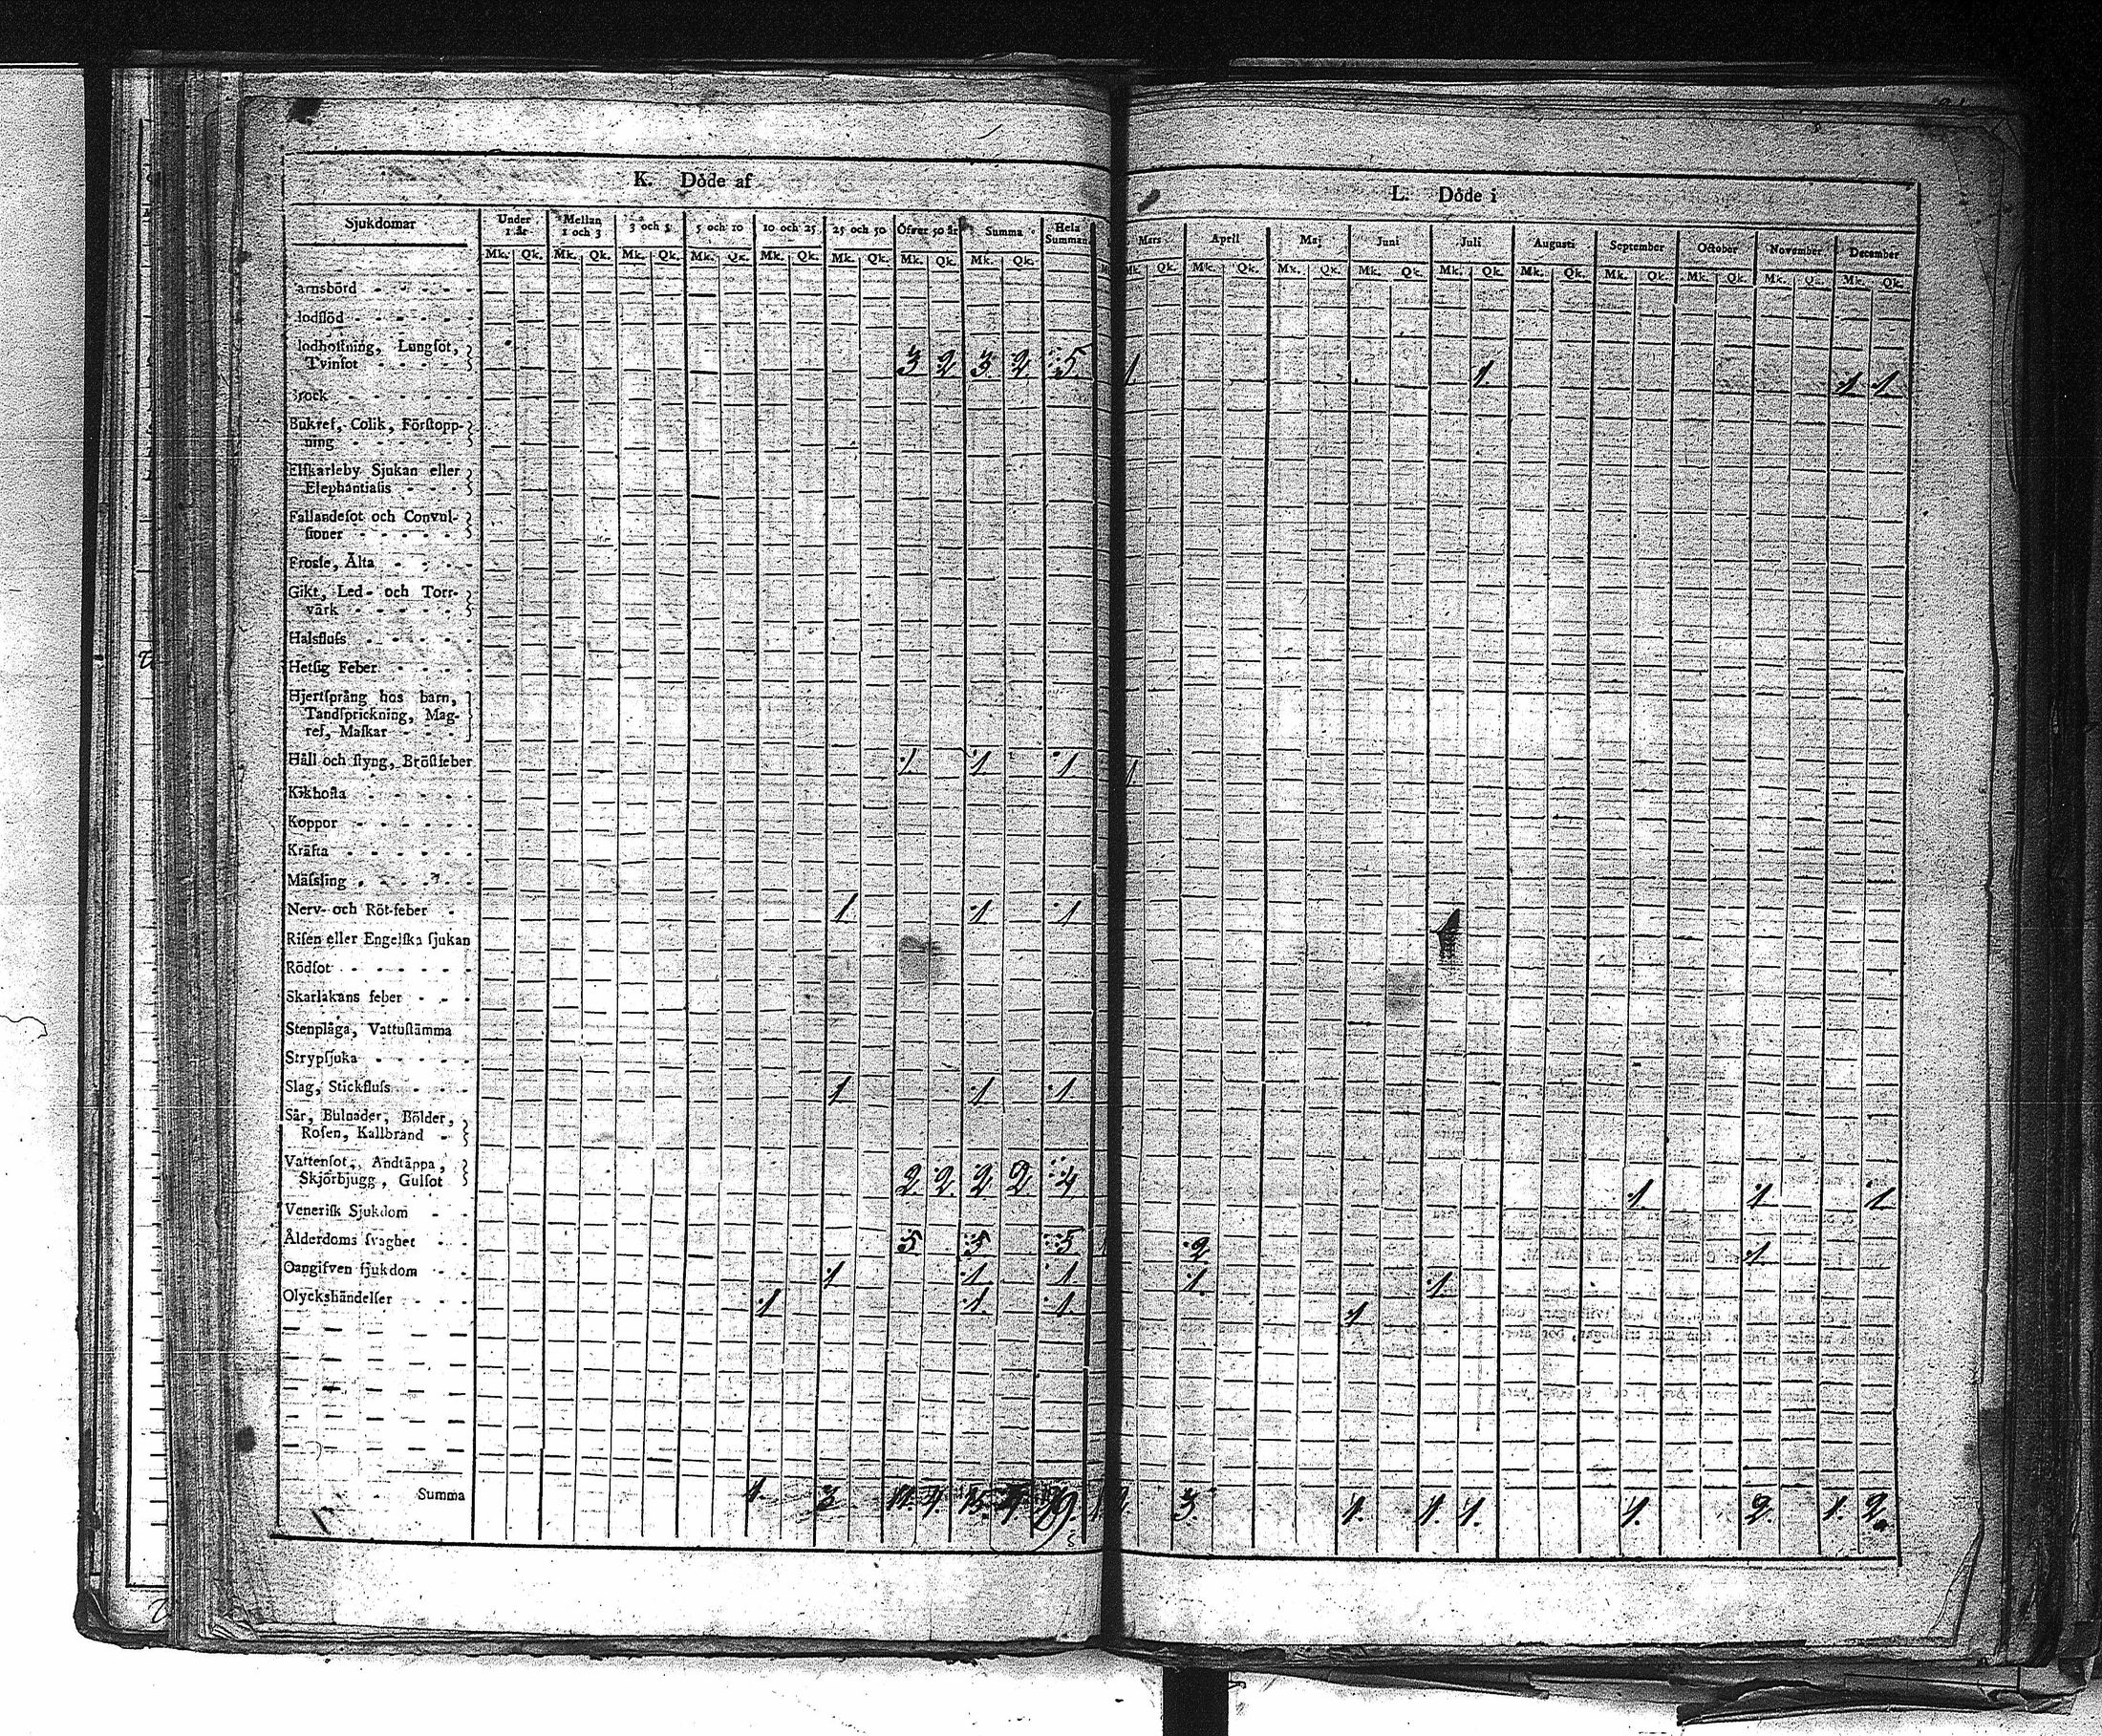 K. Döde af
Sjukdomar Under 1 år Mellan 1 och 3 3 och 5 5 och 10 10 och 25 25 och 50 Öfver 50 år Summa Hela Summan
Mk. Qk. Mk. Qk. Mk. Qk. Mk. Qk. Mk. Qk. Mk. Qk. Mk. Qk. Mk. Qk.
arnsbörd
lodflöd
lodhoſtning, Lungſot,
Tvinſot 3 2 3 2 5
Bukref, Colik, Förſtopp-
ning
Elfkarleby Sjukan eller
Elephantiaſis
Fallandeſot och Convul-
ſioner
Froſſe, Älta
Gikt, Led- och Torr-
värk
Halsfluſs
Hetſig Feber
Hjertſprång hos barn,
Tandſprickning, Mag-
ref, Maſkar
Håll och ſtyng, Bröſtfeber 1 1 1
Kikhoſta
Koppor
Kräfta
Mäſsling
Nerv- och Röt-feber 1 1 1
Riſen eller Engelſka ſjukan
Rödſot
Skarlakans feber
Stenplåga, Vattuſtämma
Strypſjuka
Slag, Stickfluſs 1 1 1
Sår, Bulnader, Bölder,
Roſen, Kallbrand
Vattenſot, Andtäppa,
Skjörbjugg, Gulſot 2 2 2 2 4
Veneriſk Sjukdom
Ålderdoms ſvaghet 5 5 5
Oangifven ſjukdom 1 1 1
Olyckshändelſer 1 1 1
Summa 1. 3 11. 4 15. 4 19.
L. Döde i
Mars April Maj Juni Juli Auguſti September October November December
Mk. Qk. Mk. Qk. Mk. Qk. Mk. Qk. Mk. Qk. Mk. Qk. Mk. Qk. Mk. Qk. Mk. Qk. Mk. Qk.
1 1 1 1
1
1 1 1
2 1
1 1
1
2 3. 1. 1. 1. 1. 2. 1. 2.